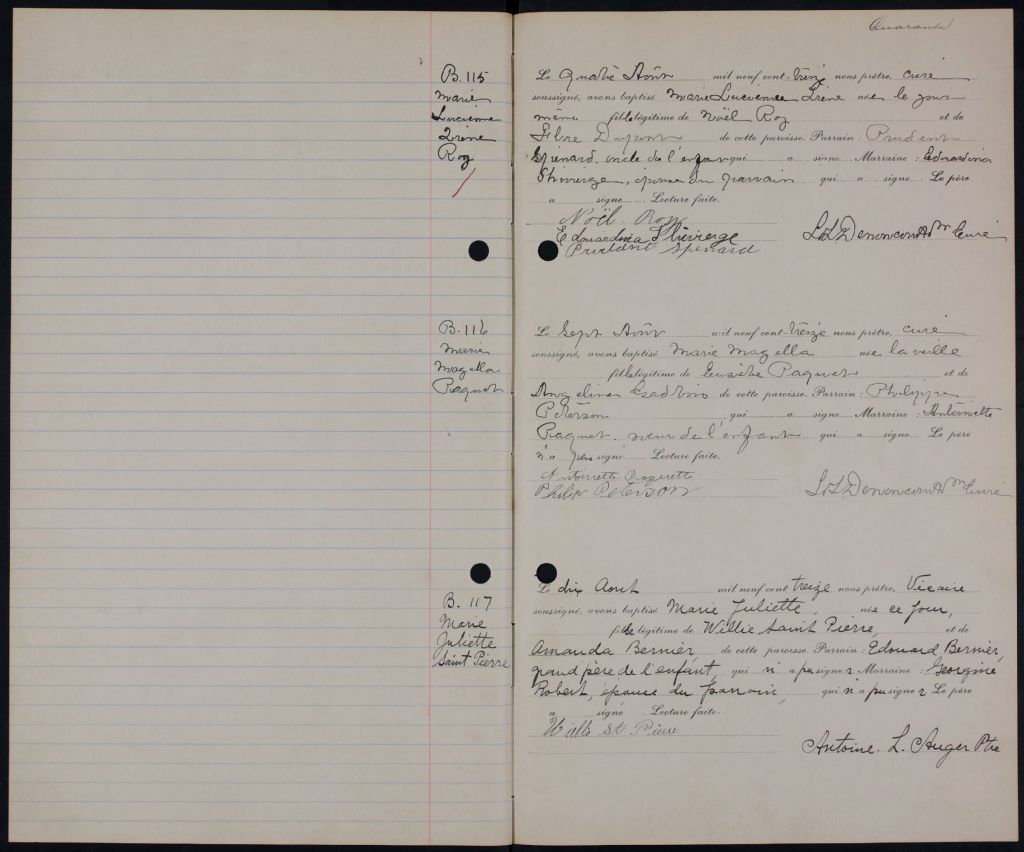 Quarante
B. 115
Marie
Lucienne
Irène
Roy
Le Quatre Août mil neuf cent-treize nous prêtre, curé
soussigné, avons baptisé Marie Lucienne Irène née le jour
même fille légitime de Noël Roy et de
Flore Dupont de cette paroisse. Parrain: Prudent
Spénard, oncle de l'enfant qui a signé. Marraine: Edouardina
Thivierge, épouse du parrain qui a signé. Le père
a signé. Lecture faite.
Noël Roy
Edouardina Thivierge
Prudant Spenard
Denoncourt Ptre Curé
B. 116
Marie
Magella
Paquet
Le Sept Août mil neuf cent-treize nous prêtre, curé
soussigné, avons baptisé Marie Magella née la veille
fille légitime de Eusèbe Paquet et de
Angelina de cette paroisse. Parrain: Philippe
Péterson qui a signé. Marraine: Antoinette
Paquet, soeur de l'enfant qui a signé. Le père
n'a pas signé. Lecture faite.
Antoinette Paquette
Philip Peterson
Denoncourt Ptre Curé
B. 117
Marie
Juliette
Saint Pierre
Le dix Aout mil neuf cent treize nous prêtre, Vicaire
soussigné, avons baptisé Marie Juliette, née ce jour,
fille légitime de Willie Saint Pierre, et de
Amanda Bernier de cette paroisse. Parrain: Edouard Bernier,
grand père de l'enfant, qui n'a pu signer Marraine: Georginé
Robert, épouse du parrain, qui n'a pu signer Le père
a signé. Lecture faite.
Willie St Pierre
Antoine. L. Auger Ptre